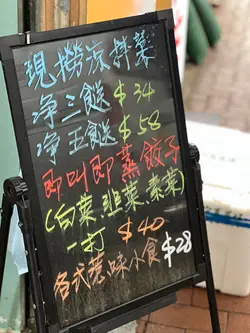 現撈凉拌菜
净三餸 $34
净五餸 $58
即叫即蒸餃子
(白菜、韭菜、素菜)
一打 $40
各式惹味小食 $28